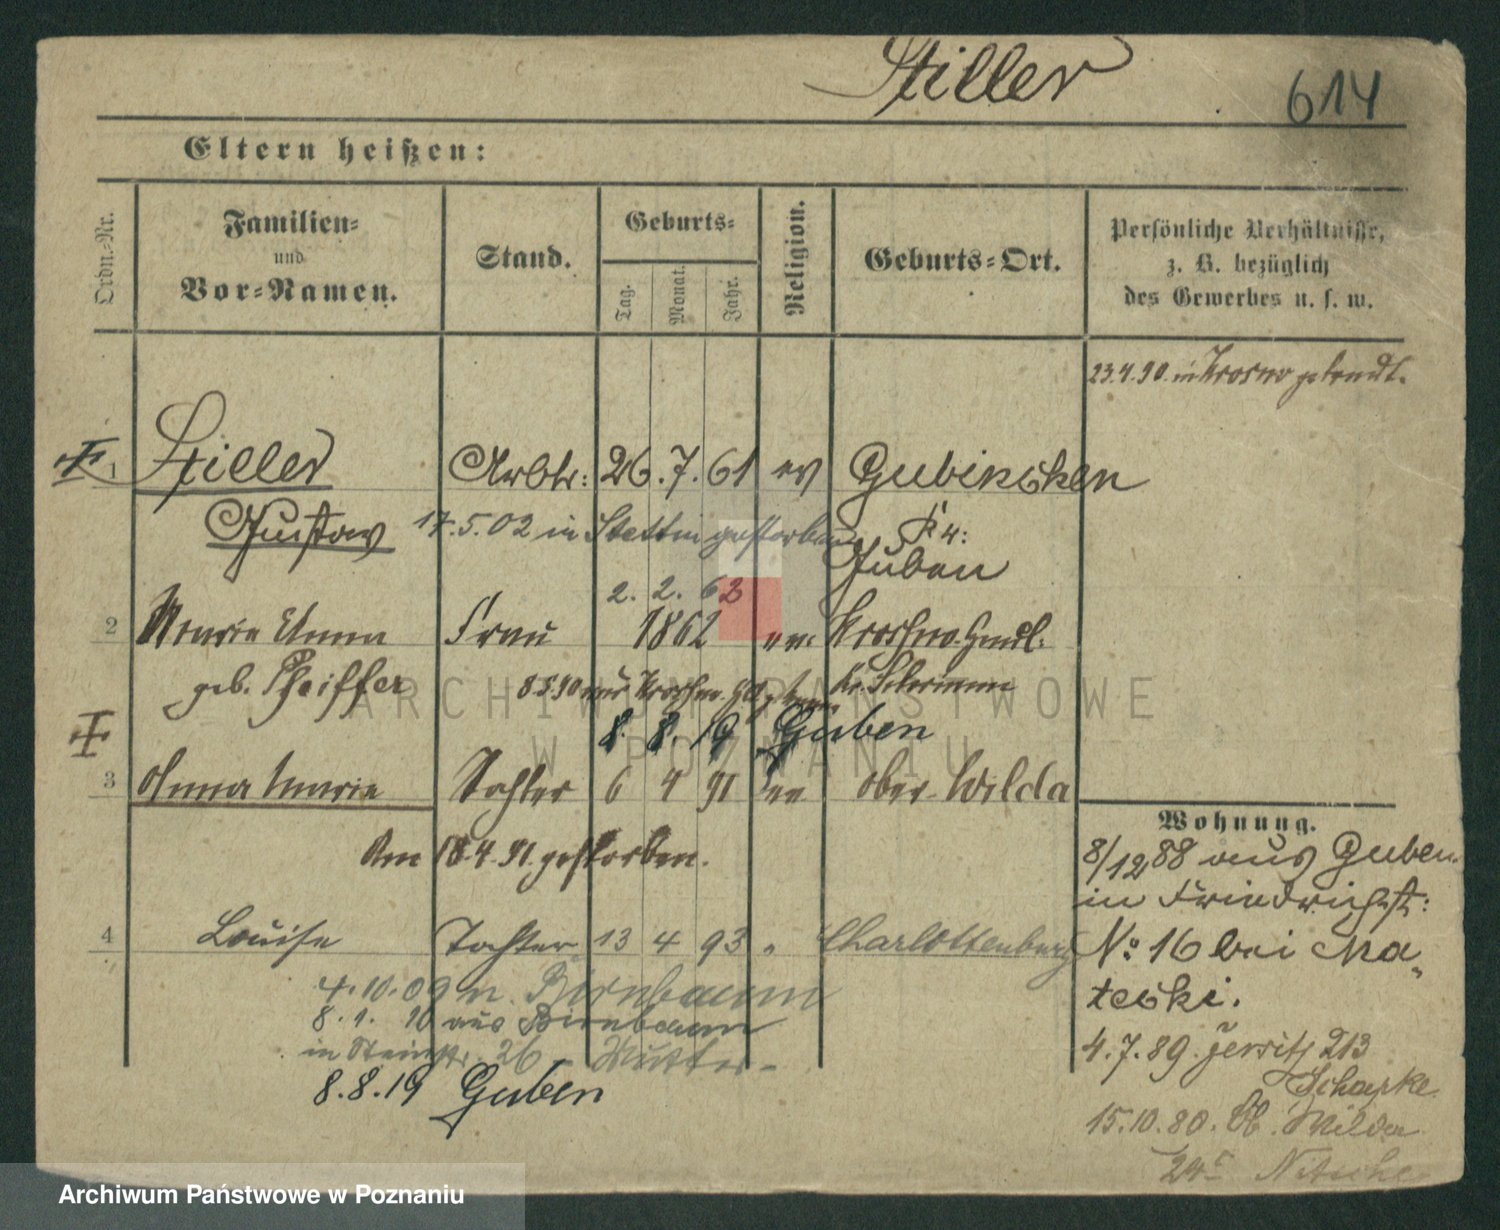 Stiller
614
Eltern heißen:
Ordn.-Nr.
Familien-
und
Vor-Namen.
Stand.
Geburts-
Tag.
Monat.
Jahr.
Religion.
Geburts-Ort.
Persönliche Verhältnisse,
z. B. bezüglich
des Gewerbes u. s. w.
23.4.90. in Krosno getraut.
1 Stiller Arbtr: 26. 7. 61 ev Gubinchen
Gustav 17.5.02 in Stettin gestorben Kr:
Guben
2. 2. 62
2 Marie Anna Frau 1862 ev. Krosno Haul.
geb. Pfeiffer 8.5.90 aus Krosno Kr. Schrimm
8. 8. 19 Guben
3 Anna Marie Tochter 6 4 91 ev Ober-Wilda
Am 18.4.91. gestorben.
4 Louise Tochter 13 4 93 " Charlottenburg
4.10.09 n. Birnbaum
8. 1. 10 aus Birnbaum
in Steinstr. 26 - Mutter -
8.8.19 Guben
Wohnung.
8/12 88 aus Guben
in Friedrichst:
No 16 bei Ma-
tecki.
4.7.89. Jersitz 213
Schapke
15.10.80. Ob. Wilda
24c Nitsche
ARCHIWUM PAŃSTWOWE
W POZNANIU
Archiwum Państwowe w Poznaniu